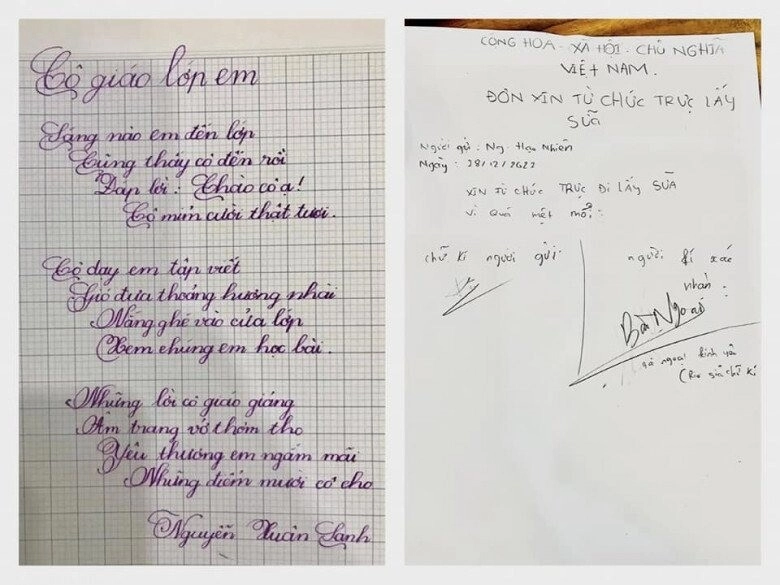 Cô giáo lớp em
Sáng nào em đến lớp
Cũng thấy cô đến rồi
Đáp lời: Chào cô ạ!
Cô mỉm cười thật tươi.
Cô dạy em tập viết
Gió đưa thoảng hương nhài
Nắng ghé vào cửa lớp
Xem chúng em học bài.
Những lời cô giáo giảng
Ấm trang vở thơm tho
Yêu thương em ngắm mãi
Những điểm mười cô cho
Nguyễn Xuân Sanh
CỘNG HOA - XÃ HỘI - CHỦ NGHĨA
VIỆT NAM.
ĐƠN XIN TỪ CHỨC TRỰC LẤY
SỮA
Người gửi : Ng. Hạo Nhiên
Ngày : 28/12/2022
XIN TỪ CHỨC TRỰC ĐI LẤY SỮA
Vì Quá mệt mỏi.
chữ kí người gửi.
người kí xác
nhận :
Bà Ngoại
bà ngoại kính yêu
chữ kí